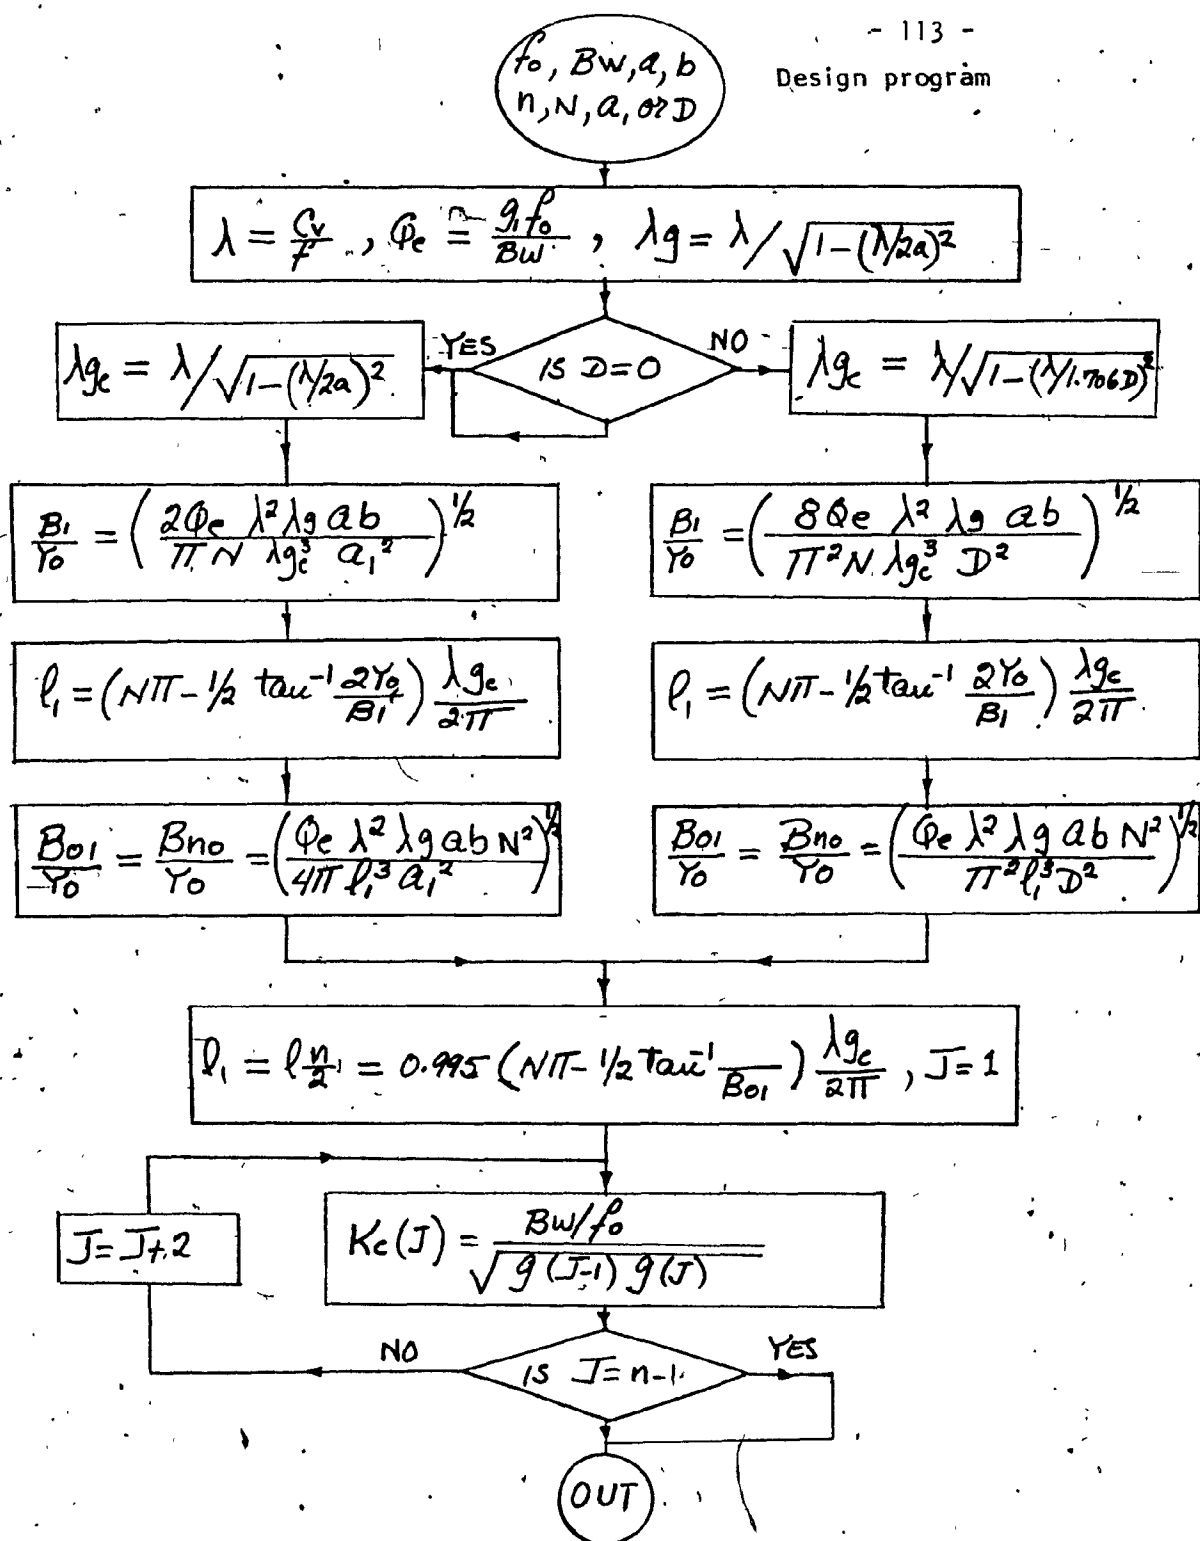 - 113 -
Design program
fo, BW, a, b
n, N, a, or D
λ = Cv/f , Qe = g1 fo/BW , λg = λ/√(1-(λ/2a)²)
IS D=0
YES
NO
λgc = λ/√(1-(λ/2a)²)
λgc = λ/√(1-(λ/1.706D)²)
B1/Yo = (2Qe λ² λg ab / π N λgc³ a1²)^1/2
B1/Yo = (8Qe λ² λg ab / π² N λgc³ D²)^1/2
l1 = (Nπ - 1/2 tan⁻¹ 2Yo/B1) λgc/2π
l1 = (Nπ - 1/2 tan⁻¹ 2Yo/B1) λgc/2π
Bo1/Yo = Bno/Yo = (Qe λ² λg ab N² / 4π l1³ a1²)^1/2
Bo1/Yo = Bno/Yo = (Qe λ² λg ab N² / π² l1³ D²)^1/2
l1 = l n/2 = 0.995 (Nπ - 1/2 tan⁻¹ /Bo1) λgc/2π , J=1
J=J+2
Kc(J) = BW/fo / √(g(J-1) g(J))
NO
IS J=n-1
YES
OUT